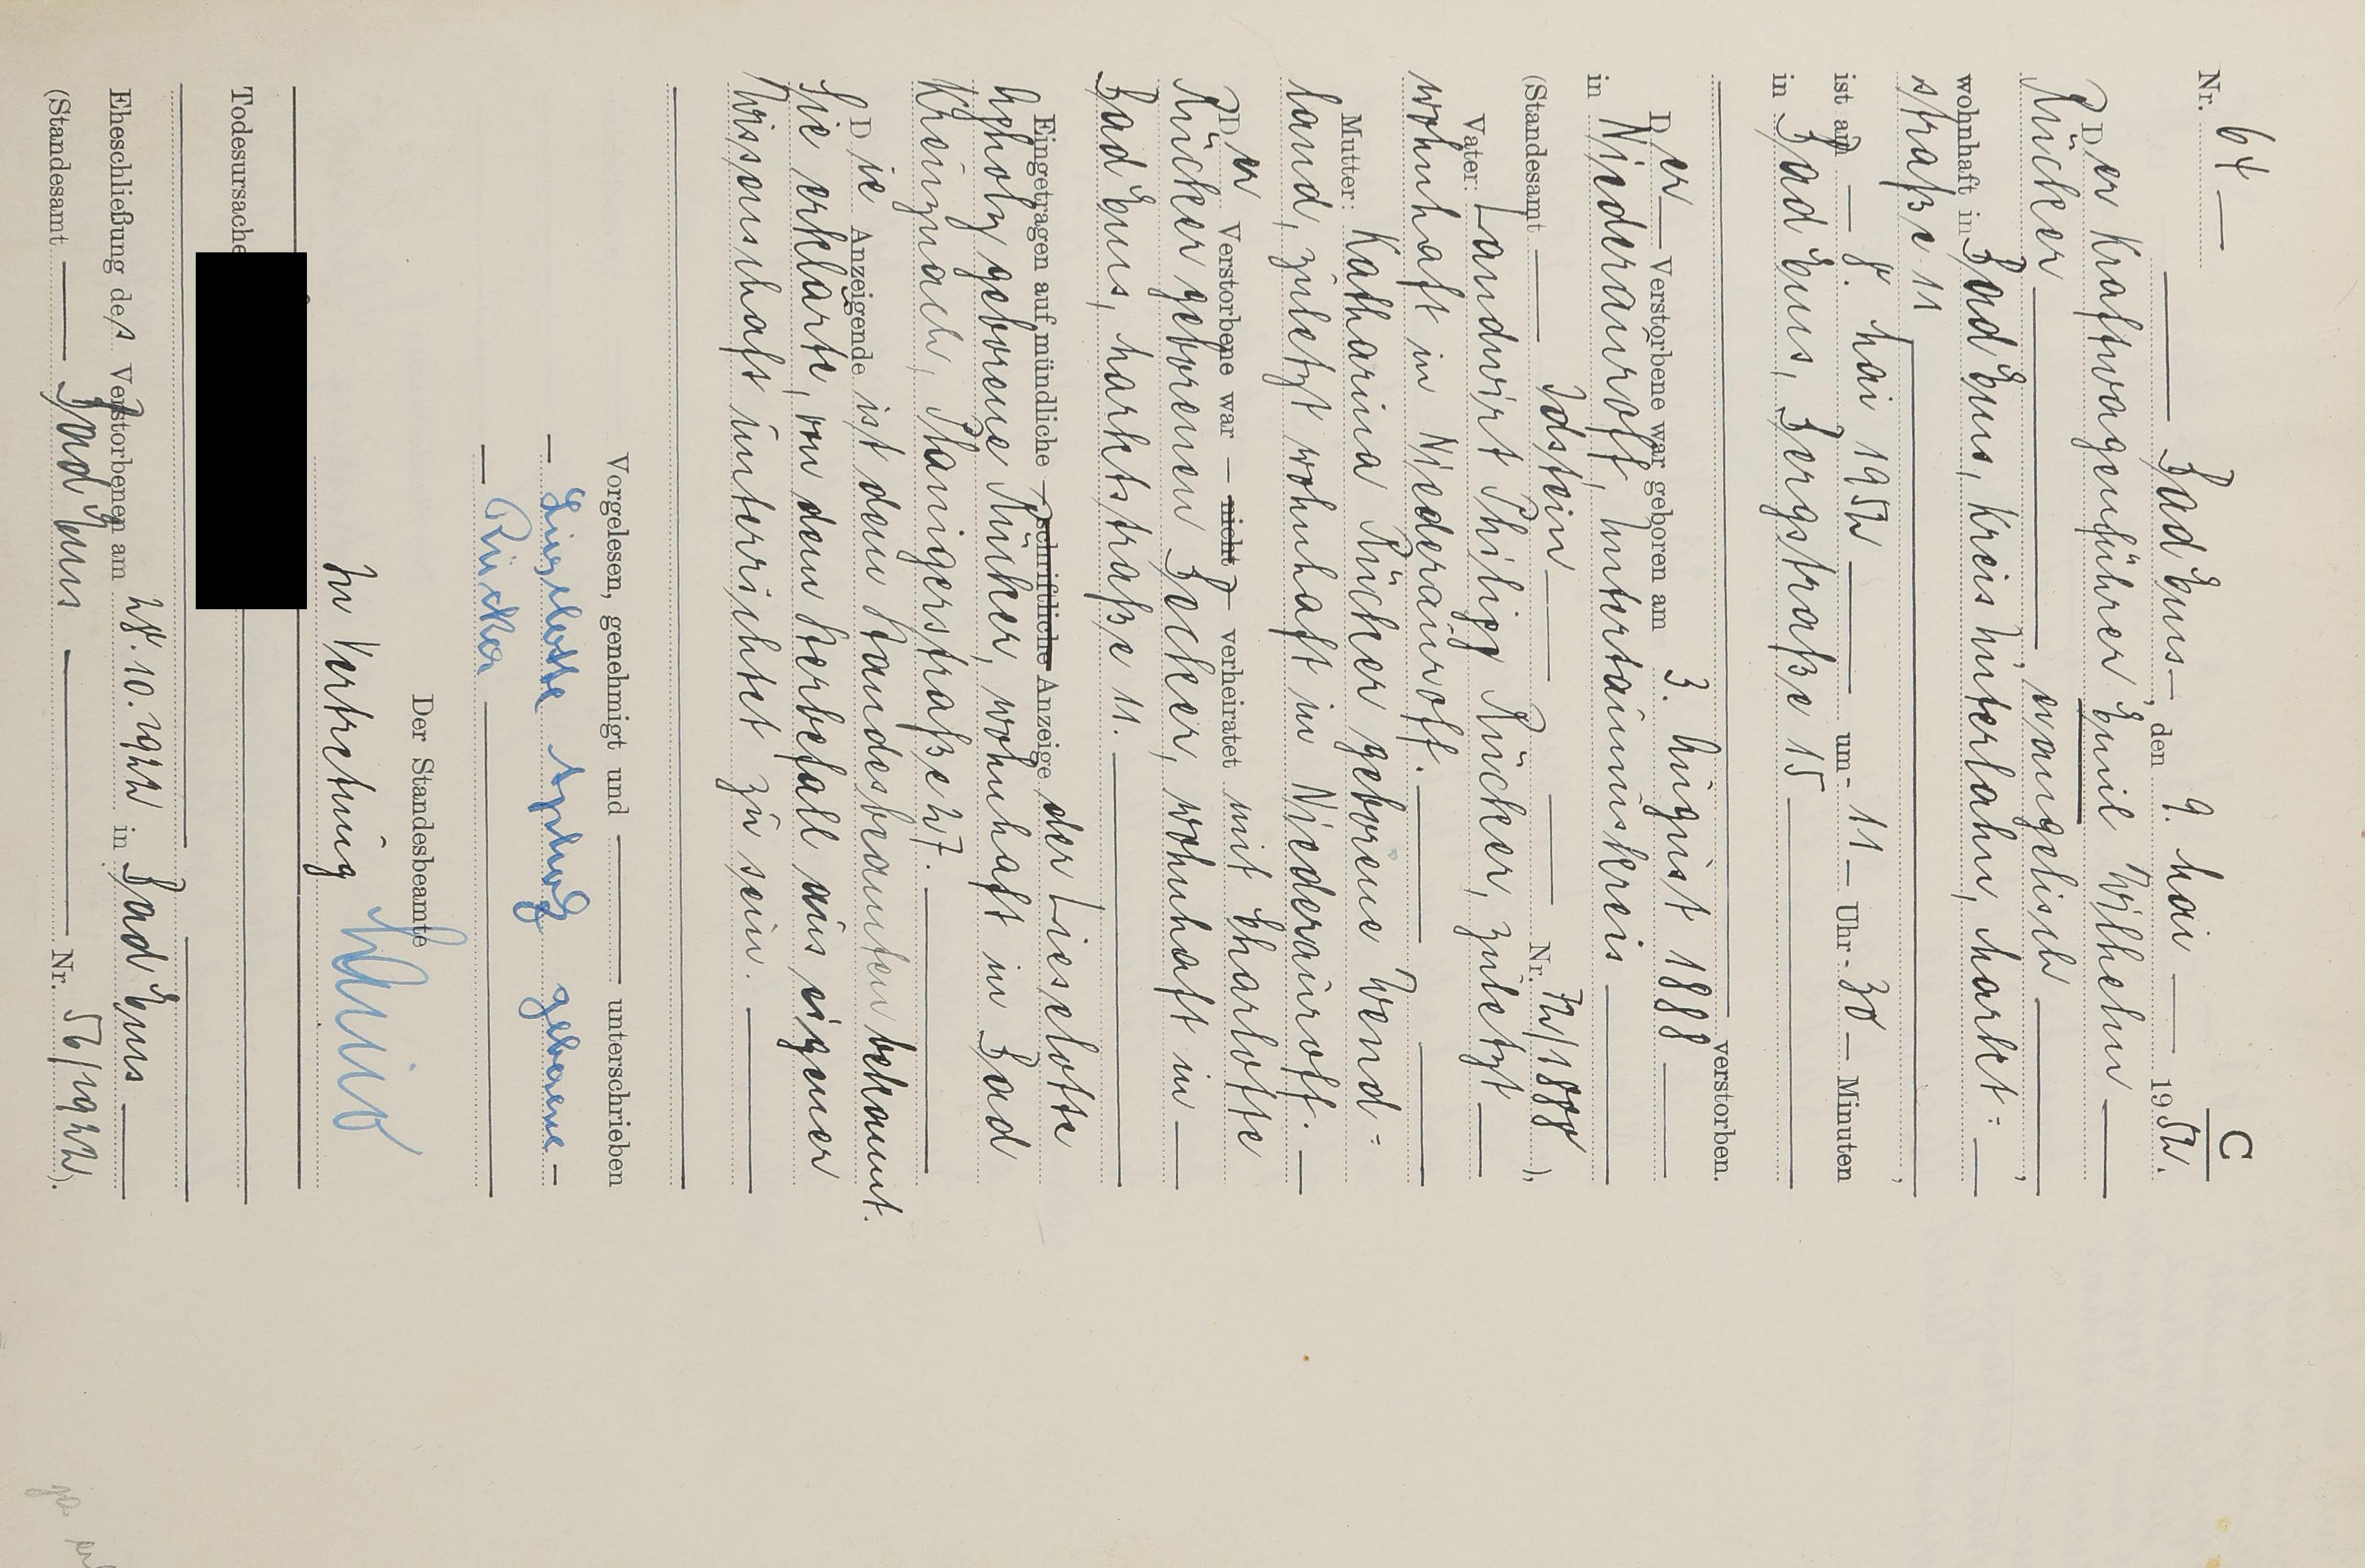 C
Nr. 64
Bad Ems, den 9. Mai 1952.
Der Kraftwagenführer Emil Wilhelm
Rücker, evangelisch,
wohnhaft in Bad Ems, Kreis Unterlahn, Markt=
straße 11,
ist am 8. Mai 1952 um 11 Uhr 30 Minuten
in Bad Ems, Bergstraße 15
verstorben.
Der Verstorbene war geboren am 3. August 1888
in Niederauroff, Untertaunuskreis
(Standesamt Idstein Nr. 72/1888),
Vater: Landwirt Philipp Rücker, zuletzt
wohnhaft in Niederauroff.
Mutter: Katharina Rücker geborene Wend=
land, zuletzt wohnhaft in Niederauroff.
Der Verstorbene war – nicht – verheiratet mit Charlotte
Rücker geborenen Becker, wohnhaft in
Bad Ems, Marktstraße 11.
Eingetragen auf mündliche – schriftliche Anzeige der Lieselotte
geborene Rücker, wohnhaft in Bad
Kreuznach, Planigerstraße 27.
Die Anzeigende ist dem Standesbeamten bekannt.
Sie erklärte, von dem Sterbefall aus eigener
Wissenschaft unterrichtet zu sein.
Vorgelesen, genehmigt und unterschrieben
Lieselotte geborene
Rücker
Der Standesbeamte
In Vertretung
Todesursache
Eheschließung des Verstorbenen am 28.10.1922 in Bad Ems
(Standesamt Bad Ems Nr. 56/1922).